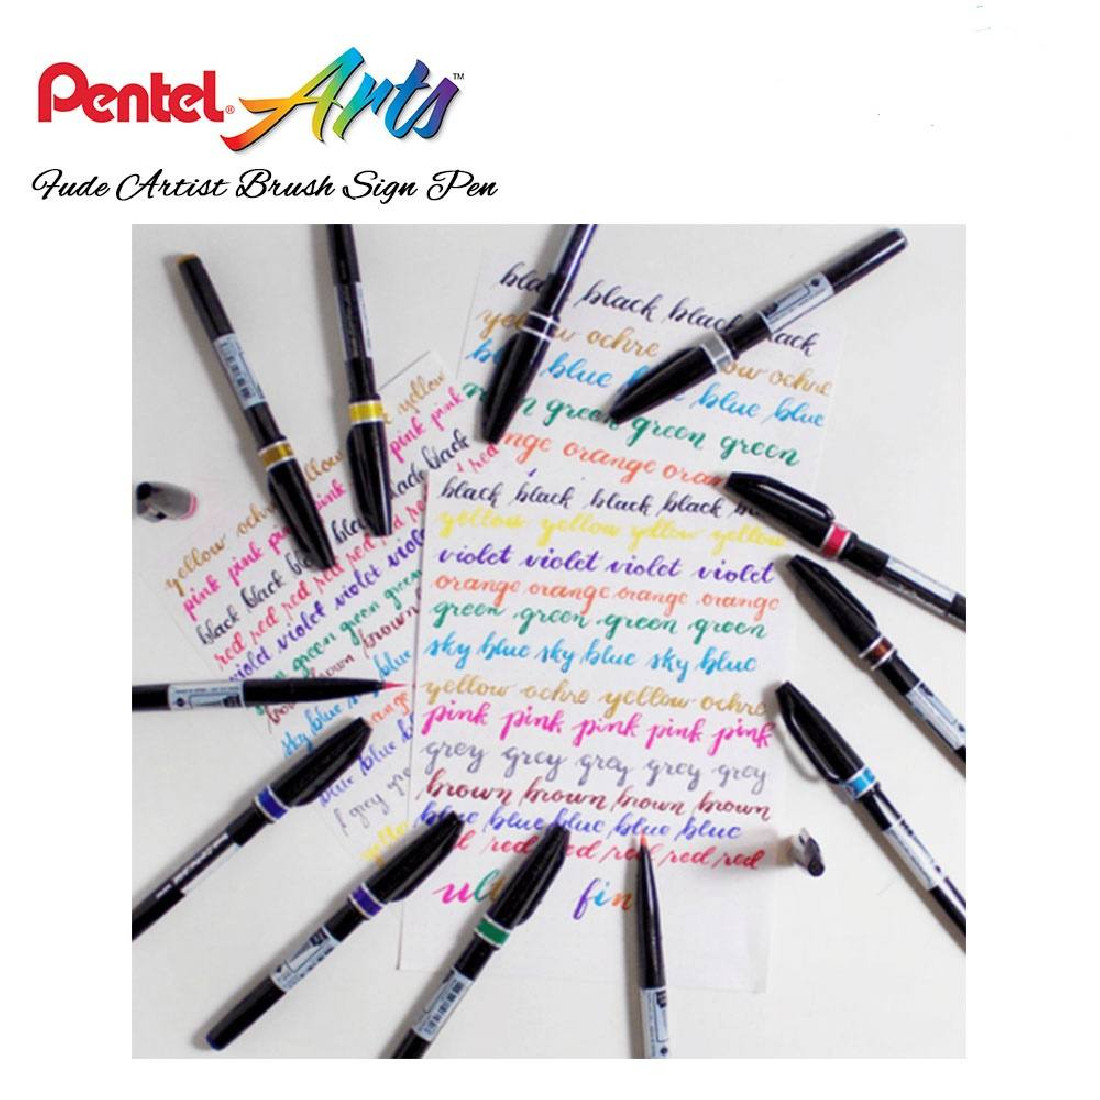 Pentel® Arts™
Fude Artist Brush Sign Pen
black black black
ochre ochre
blue blue blue
green green green
orange
black black black black
yellow yellow yellow yellow
violet violet violet violet
orange orange orange orange
green green green green
sky blue sky blue sky blue
yellow ochre yellow ochre
pink pink pink pink pink
grey grey grey grey grey
brown brown brown brown
blue blue blue blue
red red red
yellow
pink pink
black black
red
yellow ochre
pink pink
black black
red red red red red
violet violet violet
green green green
brown
sky blue sky blue
orange
blue blue
grey